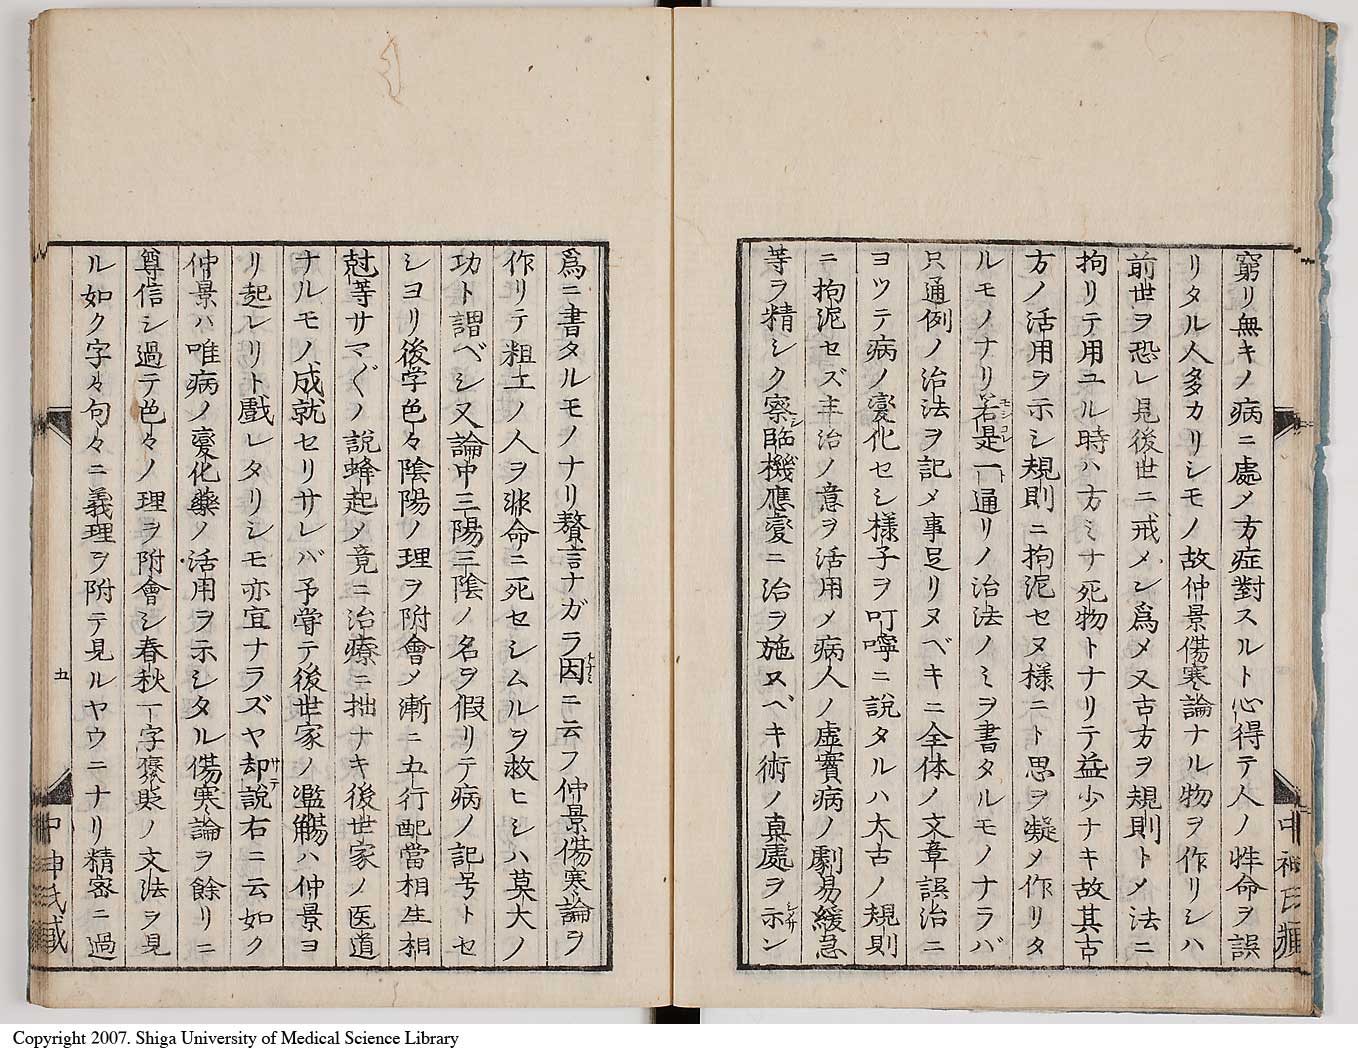 窮リ無キノ病ニ處メ方症對スルト心得テ人ノ性命ヲ誤
リタル人多カリシモノ故仲景傷寒論ナル物ヲ作リシハ
前世ヲ恐レ見後世ニ戒メン爲メ又古方ヲ規則トメ法ニ
拘リテ用ユル時ハ方ミナ死物トナリテ益少ナキ故其古
方ノ活用ヲ示シ規則ニ拘泥セヌ様ニト思ヲ凝メ作リタ
ルモノナリ若是一ト通リノ治法ノミヲ書タルモノナラバ
只通例ノ治法ヲ記メ事足リヌベキニ全体ノ文章誤治ニ
ヨツテ病ノ變化セシ様子ヲ叮嚀ニ説タルハ太古ノ規則
ニ拘泥セズ主治ノ意ヲ活用メ病人ノ虚實病ノ劇易緩急
等ヲ精シク察シ臨機應變ニ治ヲ施スベキ術ノ真處ヲ示サン
爲ニ書タルモノナリ贅言ナガラ因ニ云フ仲景傷寒論ヲ
作リテ粗工ノ人ヲ非命ニ死セシムルヲ救ヒシハ莫大ノ
功ト謂ベシ又論中三陽三陰ノ名ヲ假リテ病ノ記号トセ
シヨリ後学色々陰陽ノ理ヲ附會メ漸ニ五行配當相生相
尅等サマ〲ノ説蜂起メ竟ニ治療ニ拙ナキ後世家ノ医道
ナルモノ成就セリサレバ予嘗テ後世家ノ濫觴ハ仲景ヨ
リ起レリト戲レタリシモ亦宜ナラズヤ却説右ニ云如ク
仲景ハ唯病ノ變化藥ノ活用ヲ示シタル傷寒論ヲ餘リニ
尊信シ過テ色々ノ理ヲ附會シ春秋一字褒貶ノ文法ヲ見
ル如ク字々句々ニ義理ヲ附テ見ルヤウニナリ精密ニ過
五
中神氏藏
Copyright 2007. Shiga University of Medical Science Library